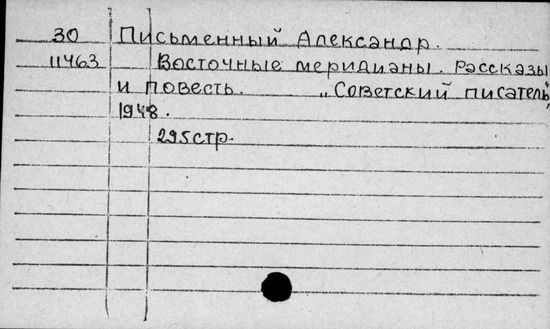 30 Письменный Александр.
11463 Восточные меридианы. Рассказы
и повесть. „Советский писатель"
1948.
295стр.